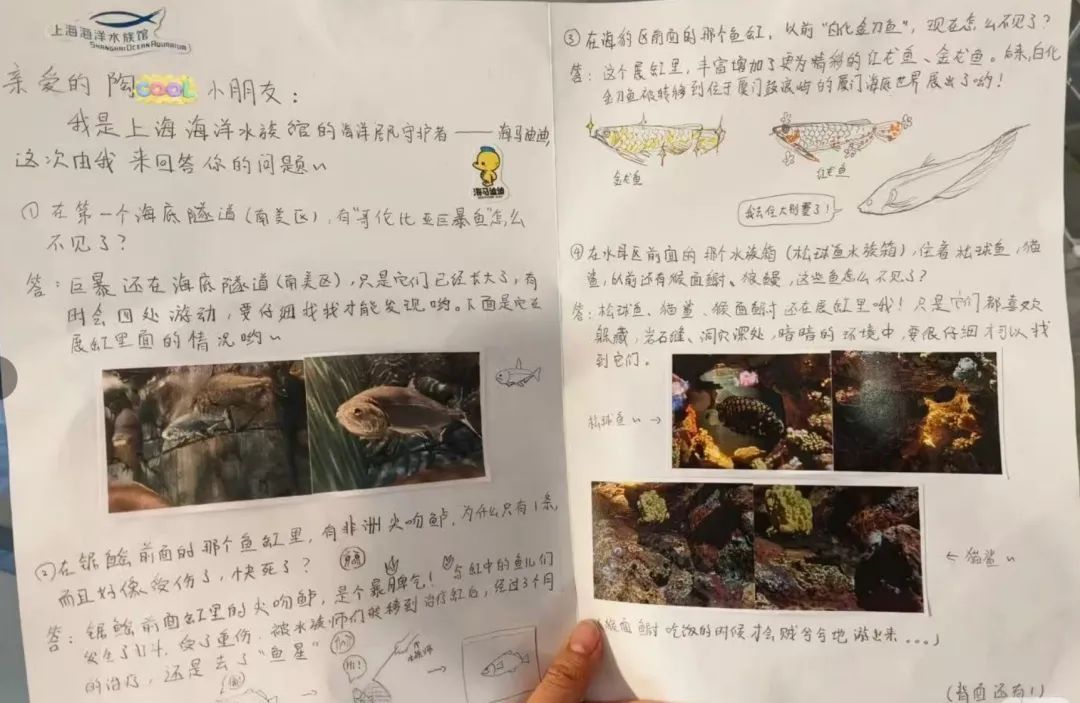 上海海洋水族馆
SHANGHAI OCEAN AQUARIUM
亲爱的 陶COOL小朋友：
我是上海海洋水族馆的海洋居民守护者——海马迪迪,
这次由我来回答你的问题~
海马迪迪
① 在第一个海底隧道(南美区),有"哥伦比亚巨暴鱼"怎么
不见了？
答：巨暴还在海底隧道(南美区),只是它们已经长大了,有
时会四处游动,要仔细找找才能发现哟。下面是它在
展缸里面的情况哟~
②在锯鳐前面的那个鱼缸里,有非洲尖吻鲈,为什么只有1条,
而且好像受伤了,快死了？
答：锯鳐前面缸里的尖吻鲈,是个暴脾气！与缸中的鱼儿们
发生了打斗,受了重伤.被水族师们转移到治疗缸后,经过3个月
的治疗,还是去了"鱼星"
Hi!
③ 在海豹区前面的那个鱼缸,以前"白化金刀鱼",现在怎么不见了？
答：这个展缸里,丰富增加了更为精彩的红龙鱼、金龙鱼。后来,白化
金刀鱼被转移到位于厦门鼓浪屿的厦门海底世界展出了哟！
金龙鱼
红龙鱼
我去住大别墅了!
④ 在水母区前面的那个水族箱(松球鱼水族箱),住着松球鱼,猫
鲨,以前还有猴面鳚、狼鳗,这些鱼怎么不见了？
答：松球鱼、猫鲨、猴面鳚还在展缸里哦！只是它们都喜欢
躲藏,岩石缝、洞穴深处,暗暗的环境中,要很仔细才可以找
到它们。
松球鱼~→
←猫鲨~
猴面鳚吃饭的时候才会贼兮兮地游出来...」
(背面还有!)